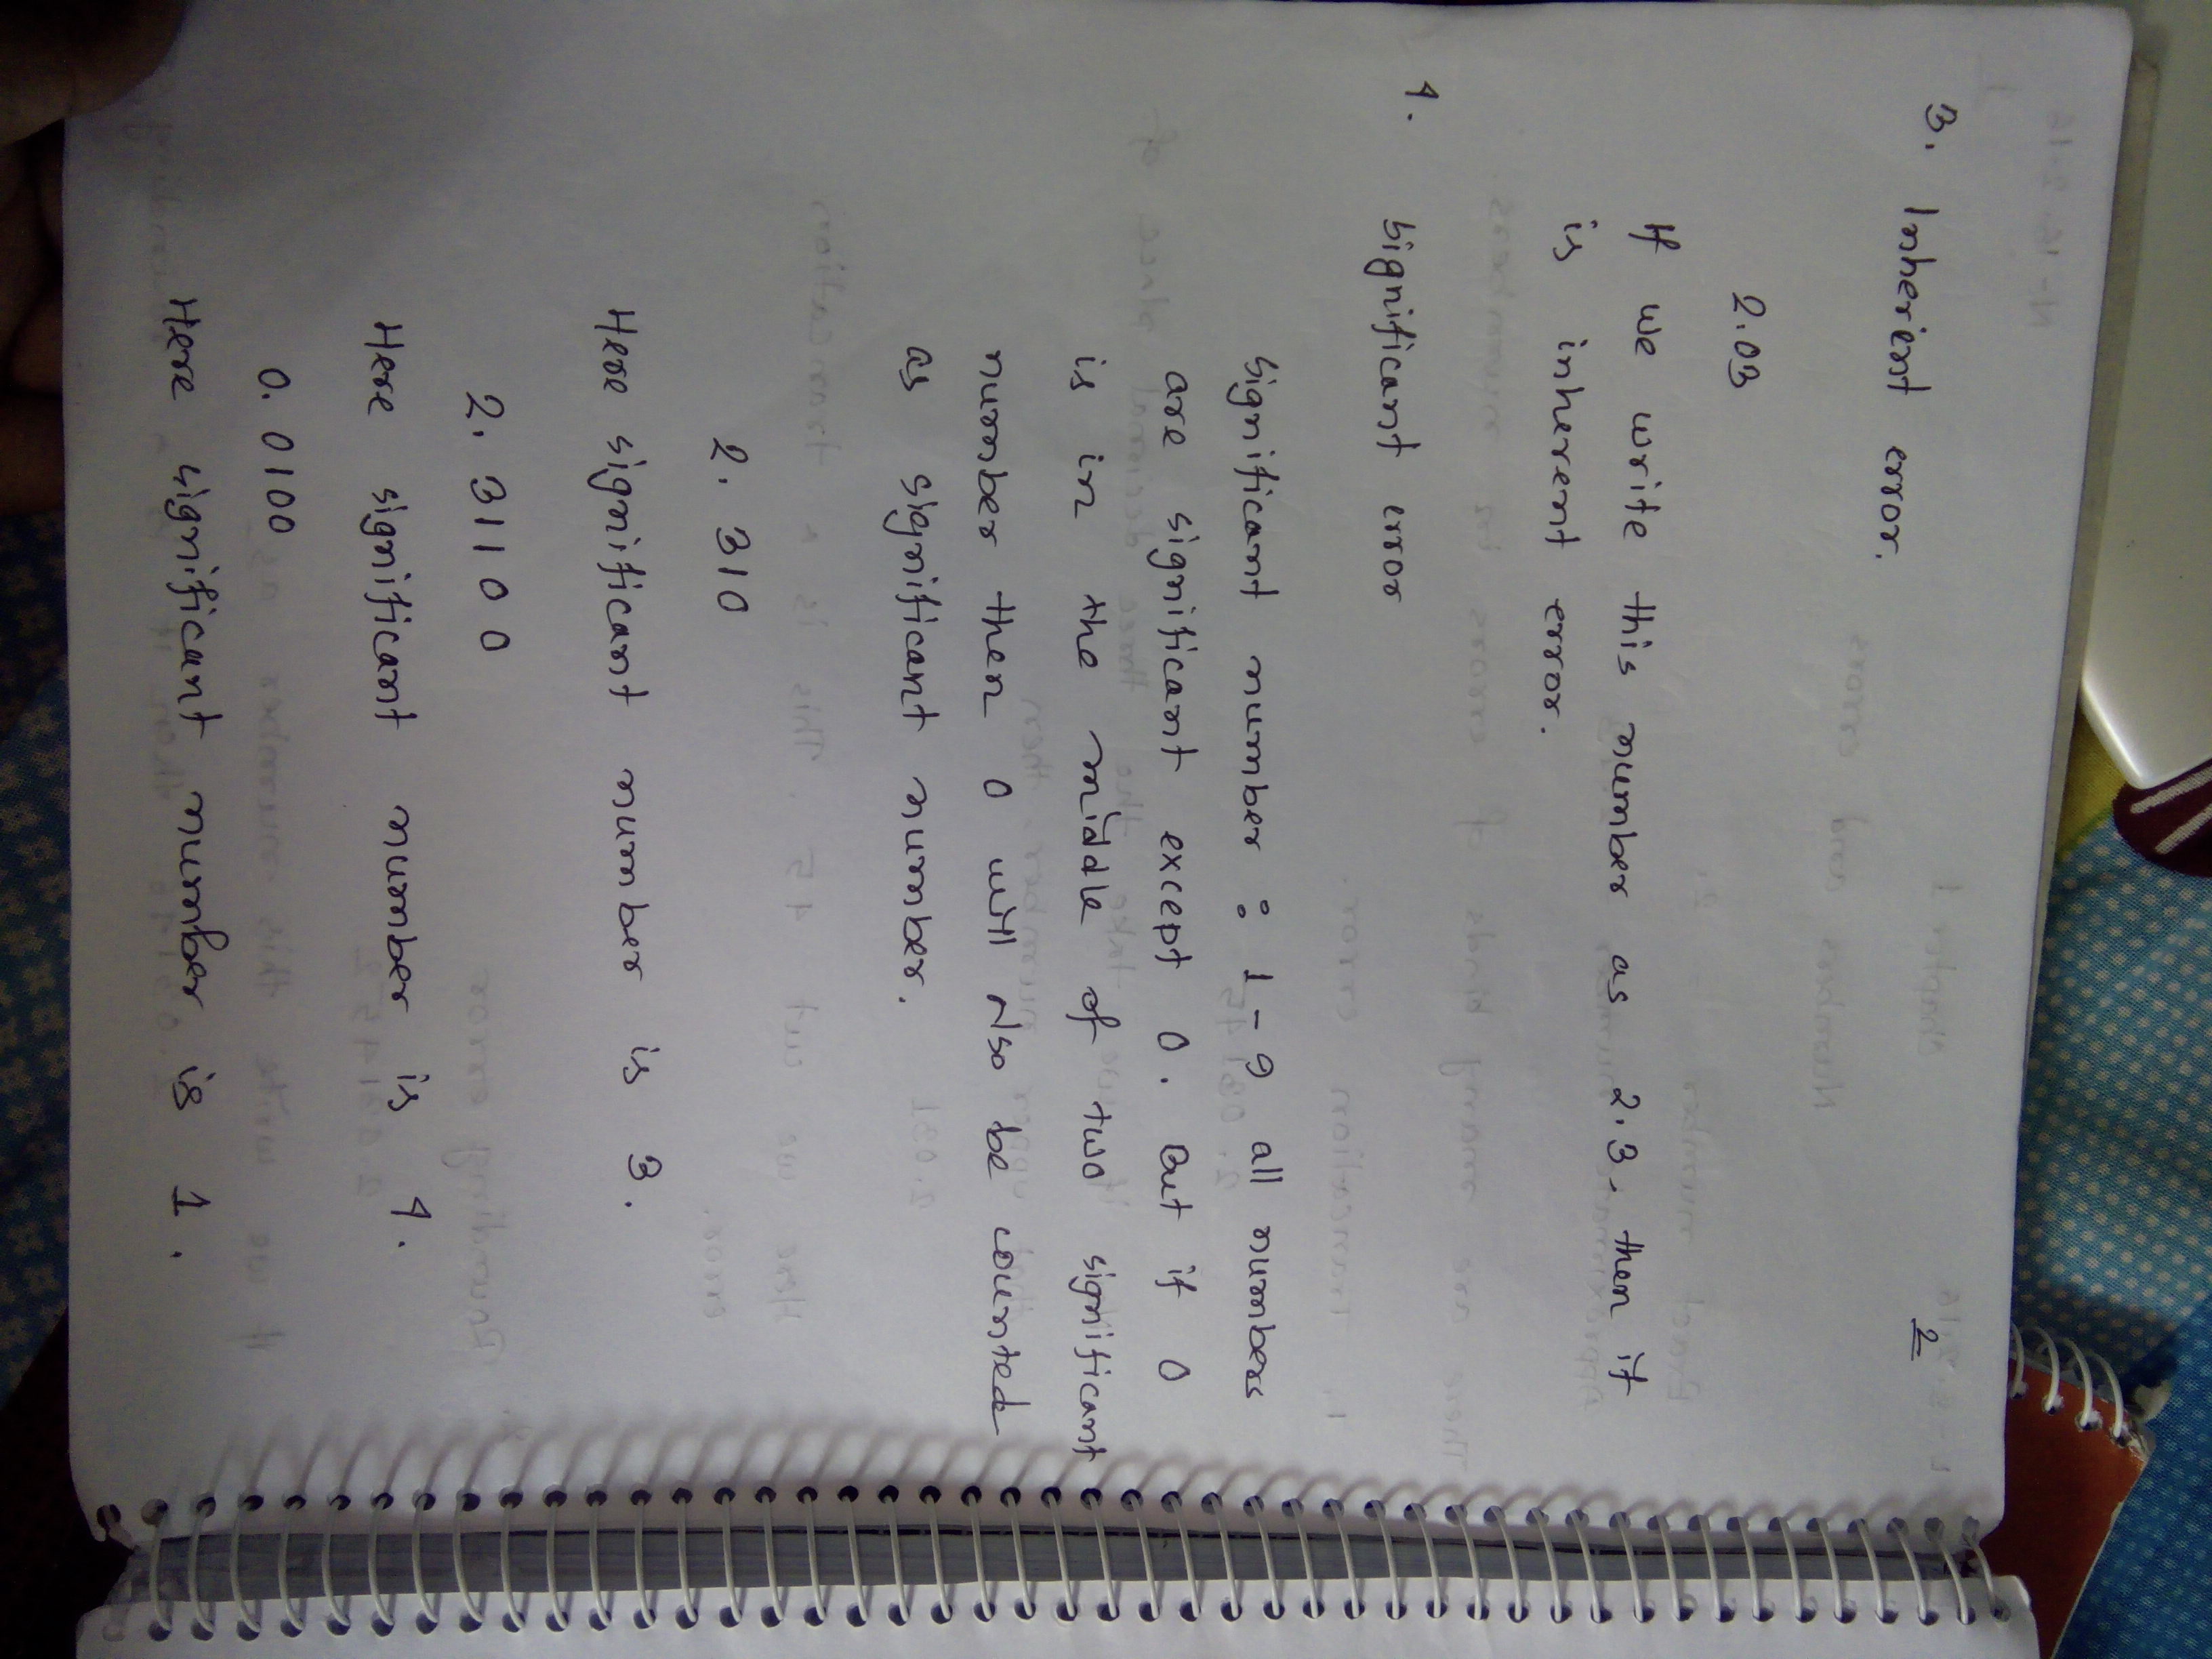 2
3. Inherient error.
2.03
If we write this number as 2.3. then it
is inherent error.
4. Significant error
Significant number : 1 - 9 all numbers
are significant except 0. But if 0
is in the middle of two significant
number then 0 will Also be counted
as significant number.
2. 310
Here significant number is 3.
2. 31100
Here significant number is 4.
0. 0100
Here significant number is 1.